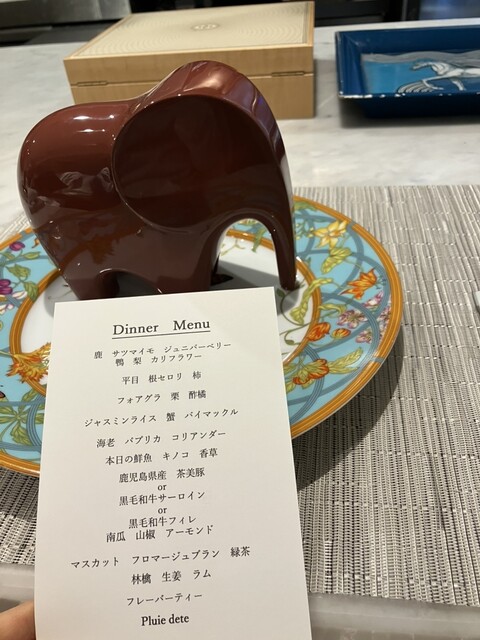 Dinner Menu
鹿 サツマイモ ジュニパーベリー
鴨 梨 カリフラワー
平目 根セロリ 柿
フォアグラ 栗 酢橘
ジャスミンライス 蟹 バイマックル
海老 パプリカ コリアンダー
本日の鮮魚 キノコ 香草
鹿児島県産 茶美豚
or
黒毛和牛サーロイン
or
黒毛和牛フィレ
南瓜 山椒 アーモンド
マスカット フロマージュブラン 緑茶
林檎 生姜 ラム
フレーバーティー
Pluie dete